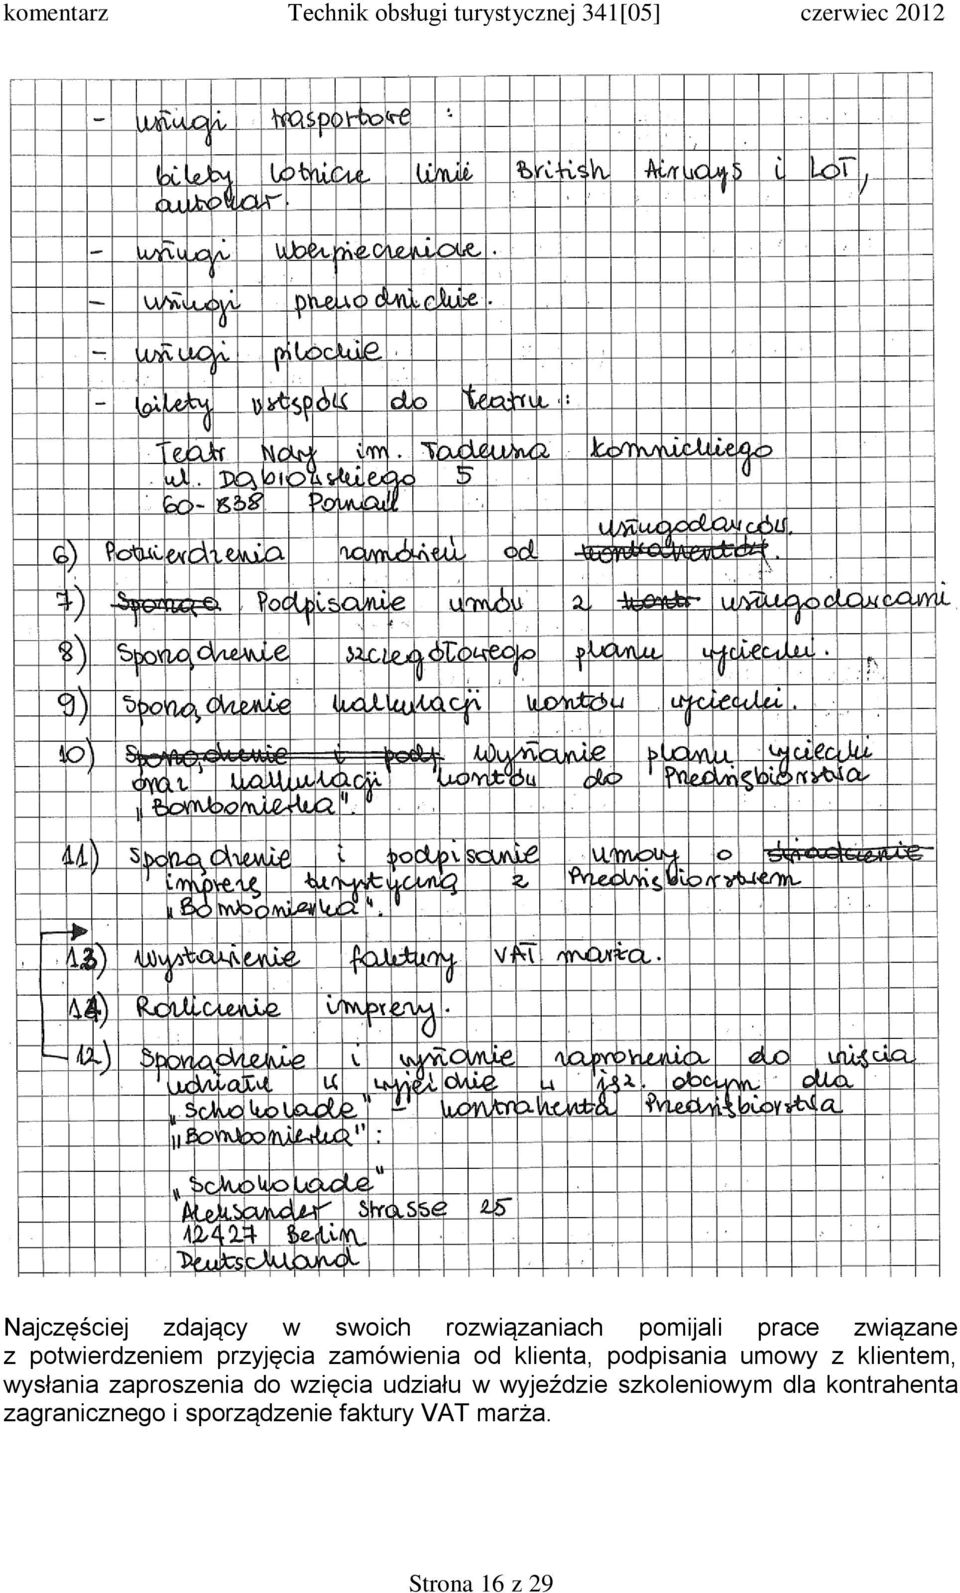 komentarz Technik obsługi turystycznej 341[05] czerwiec 2012
- usługi trasportowe :
bilety lotnicze linii British Airways i LOT,
autokar.
- usługi ubezpieczeniowe.
- usługi przewodnickie.
- usługi pilockie
- bilety wstępów do teatru :
Teatr Nowy im. Tadeusza Łomnickiego
ul. Dąbrowskiego 5
60-838 Poznań
usługodawców.
6) Potwierdzenia zamówień od kontrahentów.
7) Podpisanie umów z kontr usługodawcami
8) Sporządzenie szczegółowego planu wycieczki.
9) Sporządzenie kalkulacji kosztów wycieczki.
10) Sporządzenie i podp wysłanie planu wycieczki
oraz kalkulacji kosztów do Przedsiębiorstwa
"Bombonierka".
11) Sporządzenie i podpisanie umowy o świadczenie
imprezę turystyczną z Przedsiębiorstwem
"Bombonierka".
13) Wystawienie faktury VAT marża.
14) Rozliczenie imprezy.
12) Sporządzenie i wysłanie zaproszenia do wzięcia
udziału w wyjeździe w jęz. obcym dla
"Schokolade" – kontrahenta Przedsiębiorstwa
"Bombonierka" :
"Schokolade"
Aleksander Strasse 25
12427 Berlin
Deutschland
Najczęściej zdający w swoich rozwiązaniach pomijali prace związane
z potwierdzeniem przyjęcia zamówienia od klienta, podpisania umowy z klientem,
wysłania zaproszenia do wzięcia udziału w wyjeździe szkoleniowym dla kontrahenta
zagranicznego i sporządzenie faktury VAT marża.
Strona 16 z 29